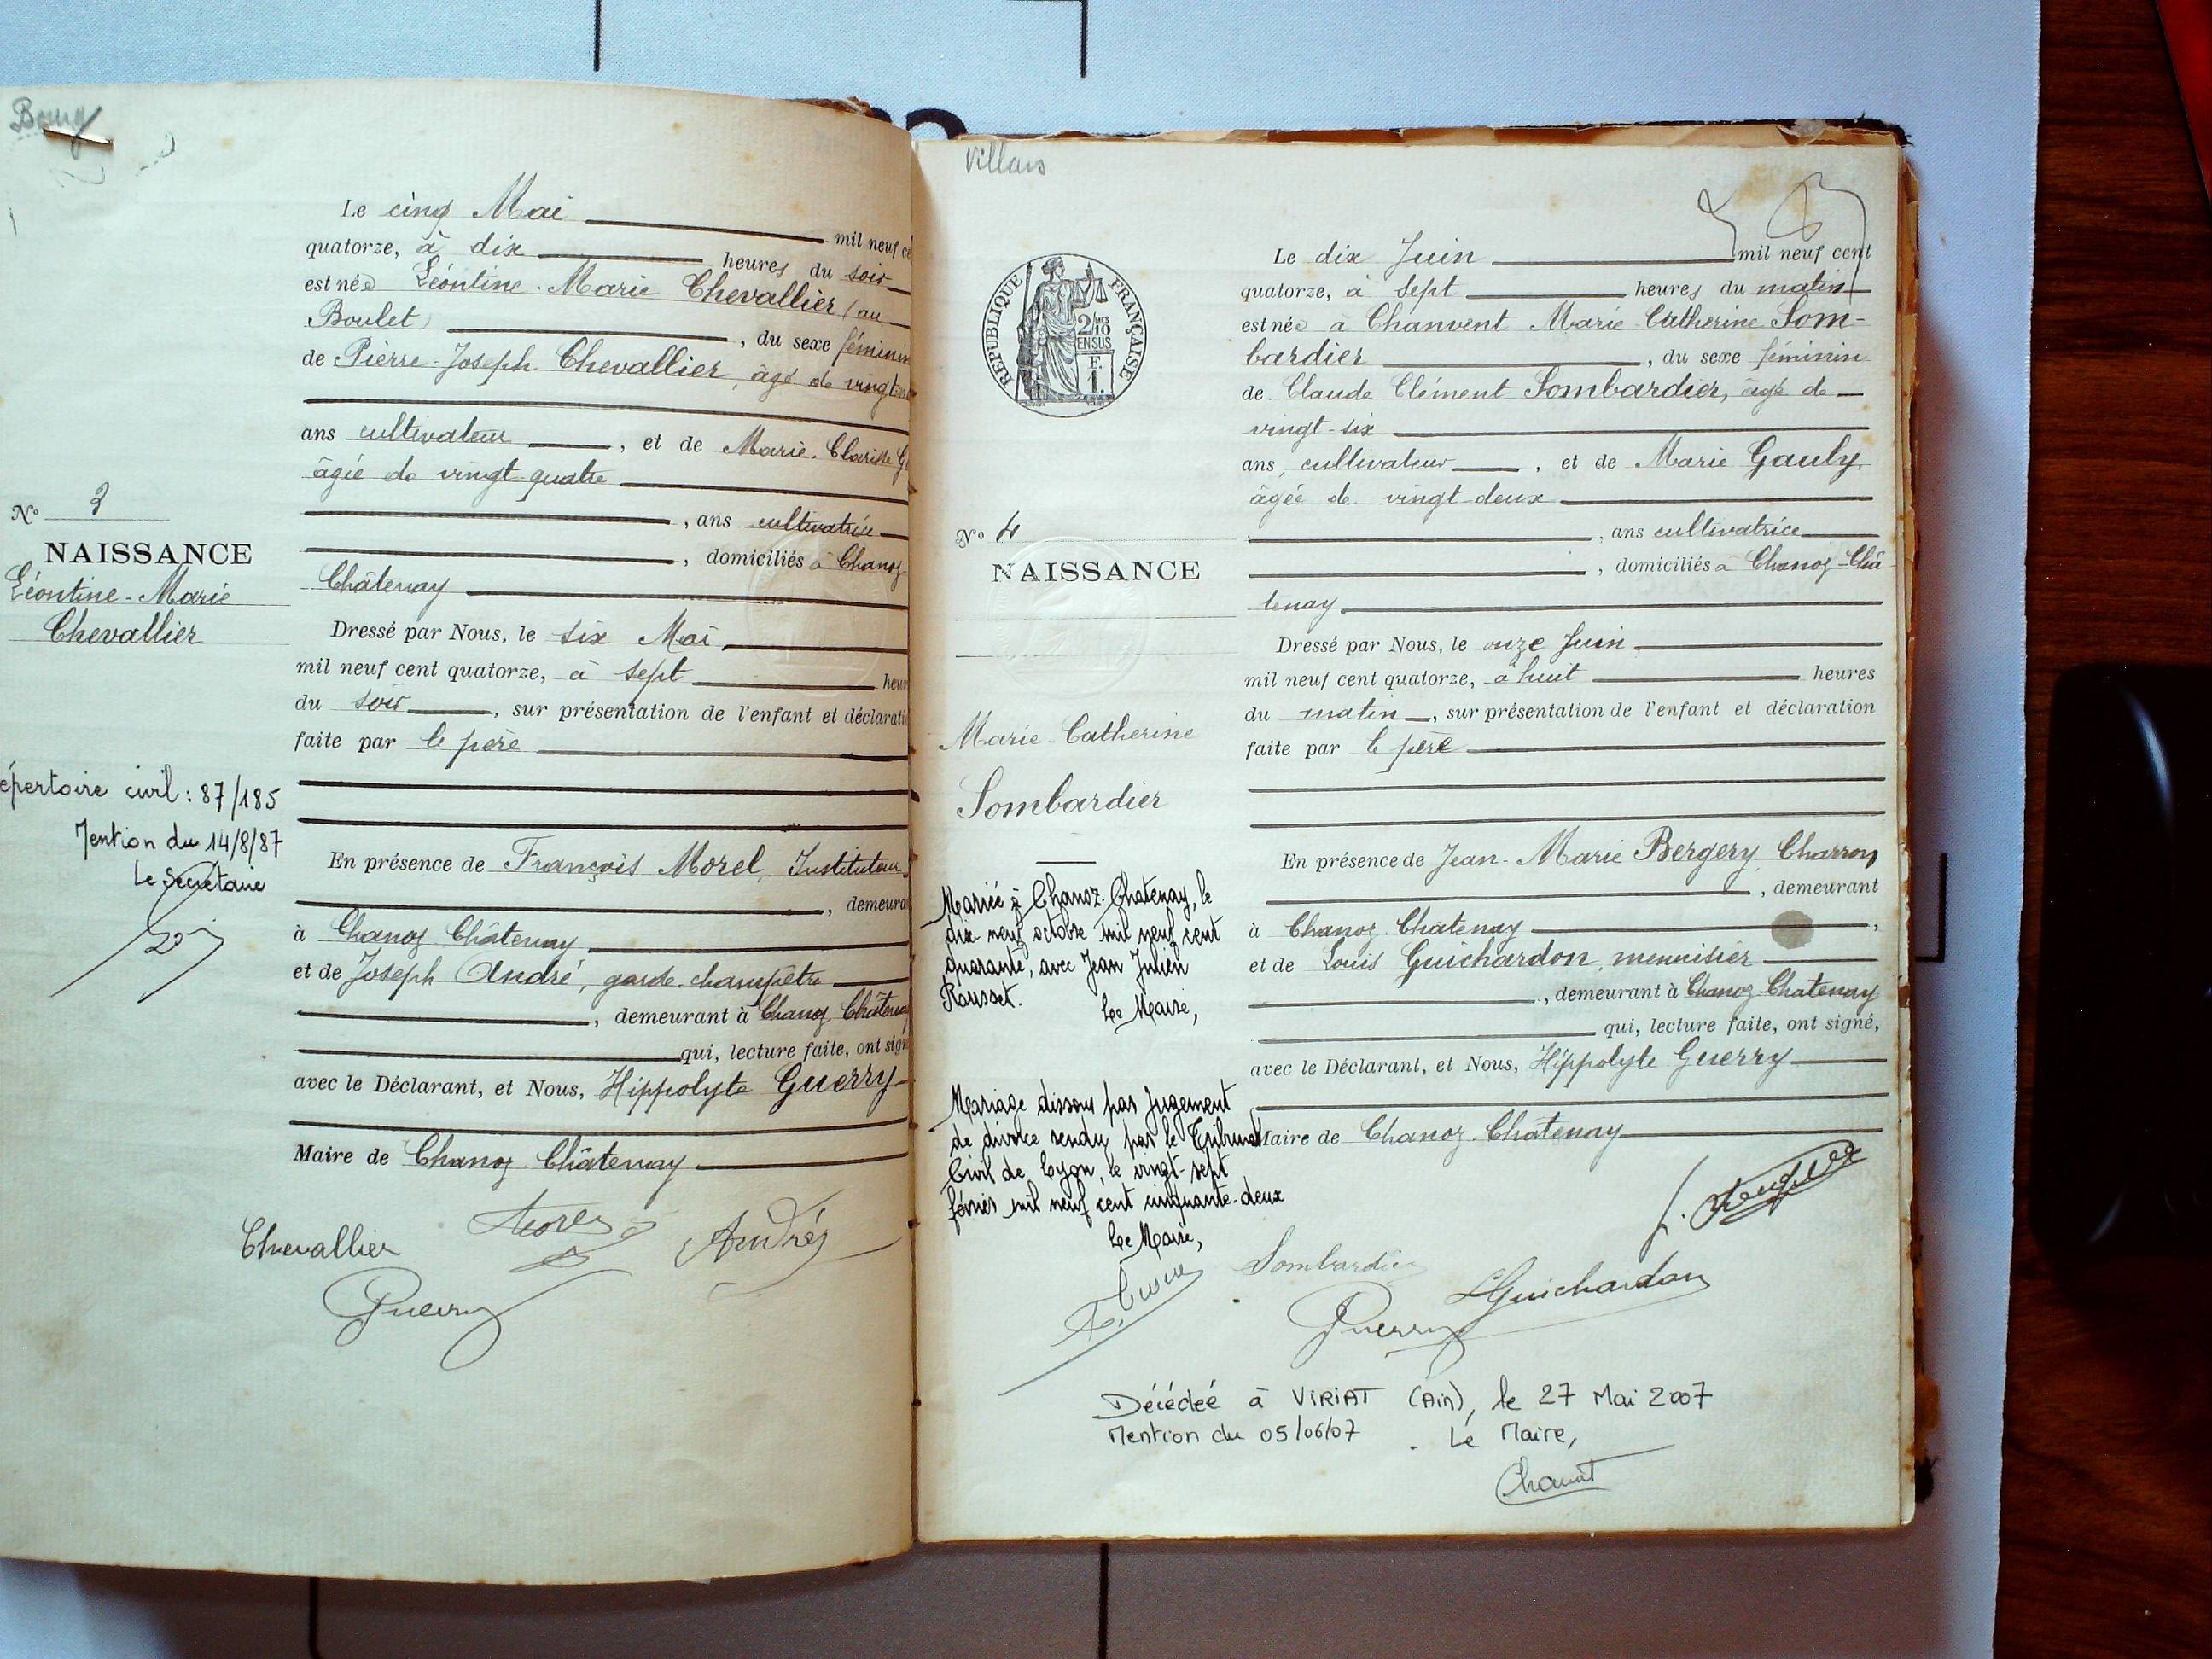 Bourg
Le cinq Mai mil neuf
quatorze, à dix heures du soir
est née Léontine-Marie Chevallier (au
Boulet) , du sexe féminin
de Pierre-Joseph Chevallier, âgé de
ans cultivateur , et de Marie-Clarisse
âgée de vingt-quatre
, ans cultivatrice
, domiciliés à Chanoz-
Châtenay
No 3
NAISSANCE
Léontine-Marie
Chevallier
Dressé par Nous, le six Mai,
mil neuf cent quatorze, à sept
du soir , sur présentation de l'enfant et
faite par le père
épertoire civil : 87/185
Mention du 14/8/87
Le Secrétaire
En présence de François Morel, Instituteur,
, demeura
à Chanoz-Châtenay
et de Joseph André, garde-champêtre
, demeurant à Chanoz-Châtenay
qui, lecture faite, ont sign
avec le Déclarant, et Nous, Hippolyte Guerry
Maire de Chanoz-Châtenay
Chevallier Morel André
Guerry
Villars
RÉPUBLIQUE FRANÇAISE
2/10
EN SUS
F.
1.
Le dix Juin mil neuf cent
quatorze, à sept heures du matin
est née à Chanvent Marie-Catherine Som-
bardier , du sexe féminin
de Claude Clément Sombardier, âgé de
vingt-six
ans, cultivateur , et de Marie Gauly
âgée de vingt-deux
, ans cultivatrice
, domiciliés à Chanoz-Châ-
tenay
No 4
NAISSANCE
Marie-Catherine
Sombardier
Dressé par Nous, le onze Juin
mil neuf cent quatorze, à huit heures
du matin , sur présentation de l'enfant et déclaration
faite par le père
En présence de Jean-Marie Bergery, Charron
, demeurant
à Chanoz-Chatenay ,
et de Louis Guichardon, menuisier
, demeurant à Chanoz-Chatenay
qui, lecture faite, ont signé,
avec le Déclarant, et Nous, Hippolyte Guerry
Maire de Chanoz-Chatenay
Mariée à Chanoz-Chatenay, le
dix-neuf octobre mil neuf cent
quarante, avec Jean Julien
Rousset.
Le Maire,
Mariage dissous par Jugement
de divorce rendu par le Tribunal
Civil de Lyon, le vingt-sept
février mil neuf cent cinquante-deux
Le Maire,
Sombardier
LGuichardon
Guerry
Décédée à VIRIAT (Ain), le 27 Mai 2007
Mention du 05/06/07 . Le Maire,
Chanat